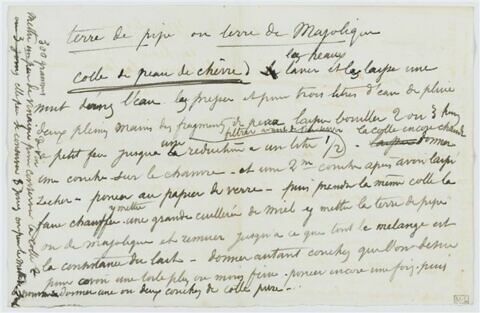 terre de pipe ou terre de Majolique
colle de peau de chèvre)
les peaux
laver et les laisser une
nuit dans l'eau les presser et pour trois litres d'eau de pluie
deux pleines mains des fragments de peau laisser bouillir 2 ou 3 heures
filtrer avant de s'en servir
à petit feu jusqu'à réduction à un litre 1/2) la colle encore chaude donner
une couche sur le chanvre - et une 2me couche après avoir laissé
sécher - poncer au papier de verre - puis prendre la même colle la
y mettre
faire chauffer une grande cuillerée de miel y mettre la terre de pipe
ou de majolique et remuer jusqu'à ce que tout le mélange est
la consistance du lait - donner autant couches que l'on désire
pour avoir une toile plus ou moins fine - poncer encore une fois - puis
donner une ou deux couches de colle pure !
300 grammes
mettre un peu de vinaigre pour conserver la colle 2
ou 3 jours